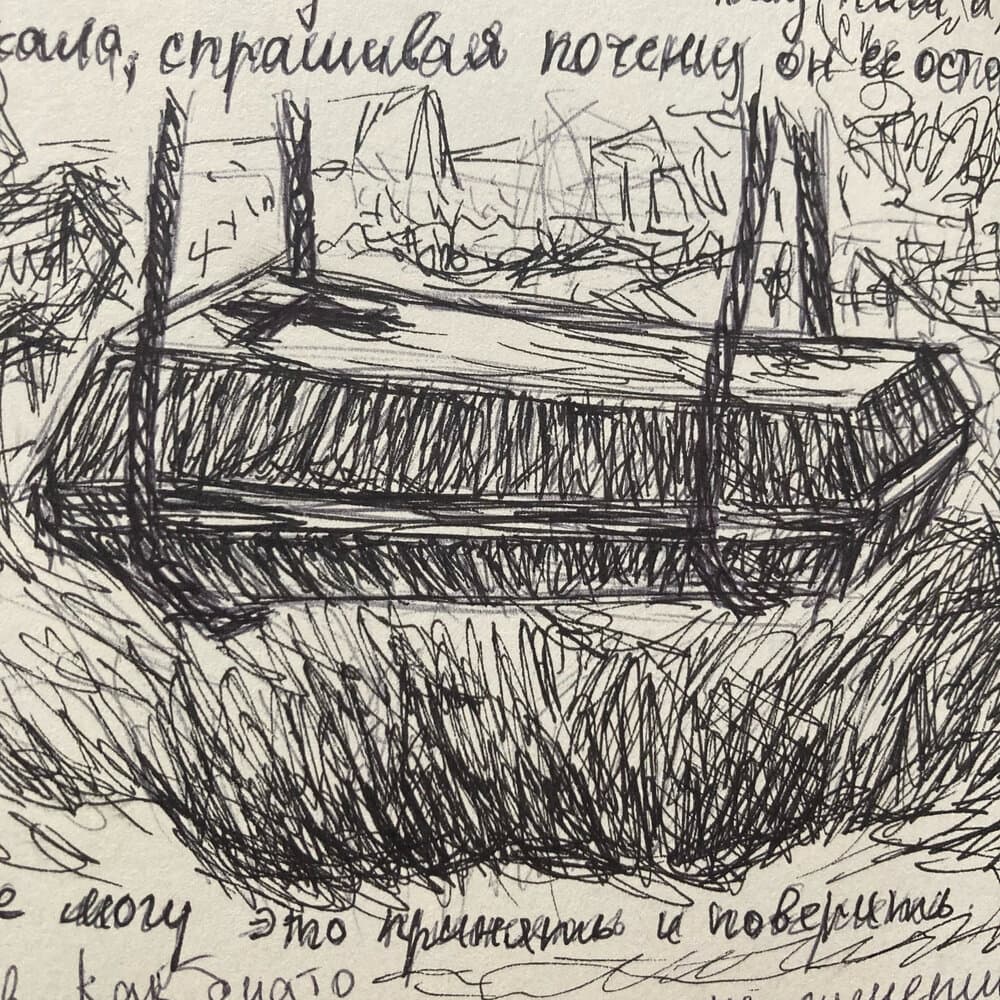 кала, спрашивая почему он её оста
е могу это принять и поверить.
в как будто